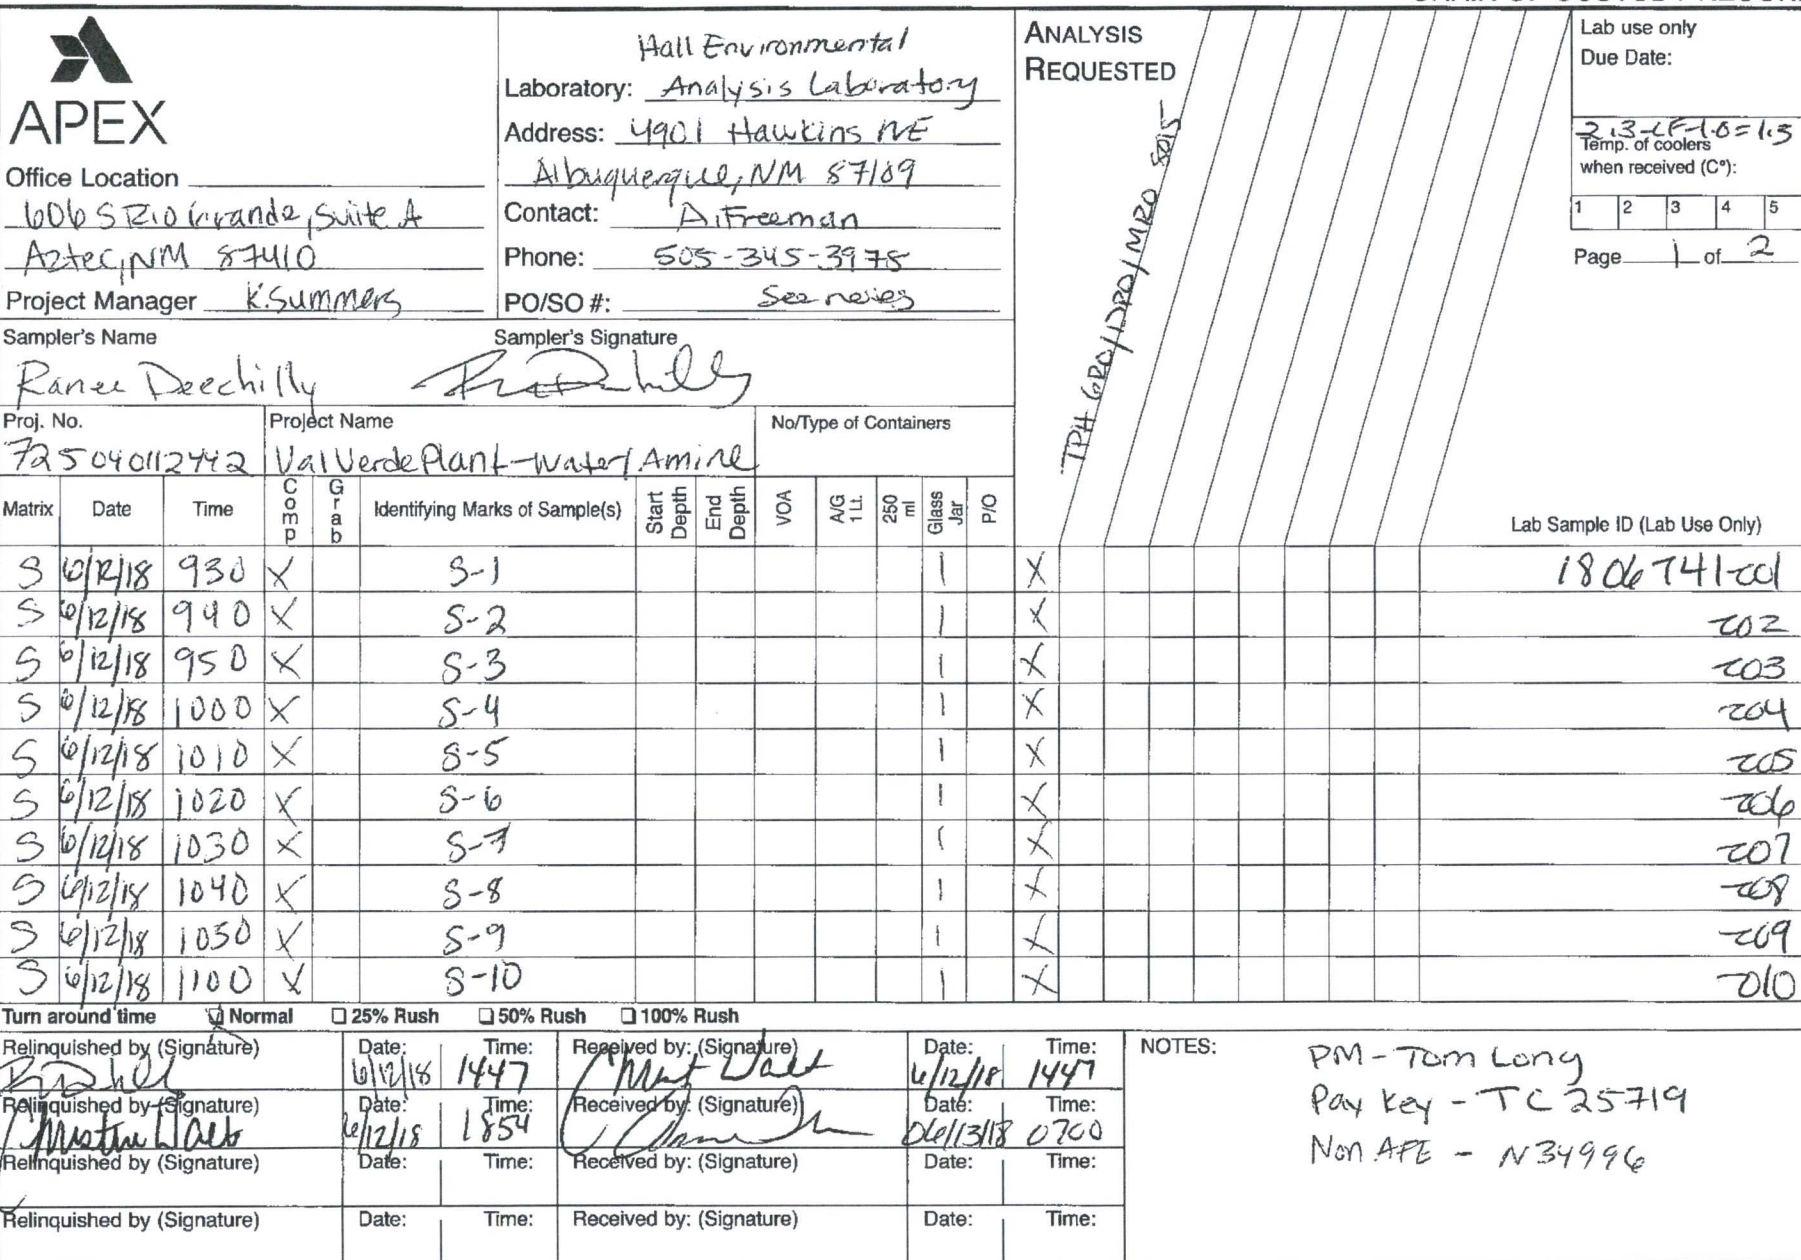 APEX
Office Location
606 S Rio Grande, Suite A
Aztec, NM 87410
Project Manager K. Summers
Hall Environmental
Laboratory: Analysis Laboratory
Address: 4901 Hawkins NE
Albuquerque, NM 87109
Contact: A. Freeman
Phone: 505-345-3975
PO/SO #: See notes
ANALYSIS
REQUESTED
TPH GRO/DRO/MRO 8015
Lab use only
Due Date:
2.3-CF-1.0=1.3
Temp. of coolers
when received (C°):
1 2 3 4 5
Page 1 of 2
Sampler's Name Sampler's Signature
Ranee Deechilly
Proj. No. Project Name No/Type of Containers
725040112442 Val Verde Plant-Water/Amine
Matrix Date Time Comp Grab Identifying Marks of Sample(s) Start Depth End Depth VOA A/G 1 Lt. 250 ml Glass Jar P/O Lab Sample ID (Lab Use Only)
S 6/12/18 930 X S-1 1 X 1806741-001
S 6/12/18 940 X S-2 1 X -002
S 6/12/18 950 X S-3 1 X -003
S 6/12/18 1000 X S-4 1 X -004
S 6/12/18 1010 X S-5 1 X -005
S 6/12/18 1020 X S-6 1 X -006
S 6/12/18 1030 X S-7 1 X -007
S 6/12/18 1040 X S-8 1 X -008
S 6/12/18 1050 X S-9 1 X -009
S 6/12/18 1100 X S-10 1 X -010
Turn around time Normal 25% Rush 50% Rush 100% Rush
Relinquished by (Signature) Date: Time: Received by: (Signature) Date: Time: NOTES:
6/12/18 1447 6/12/18 1447
PM - Tom Long
Relinquished by (Signature) Date: Time: Received by: (Signature) Date: Time:
6/12/18 1854 06/13/18 0700
Pay Key - TC 25719
Non AFE - N34996
Relinquished by (Signature) Date: Time: Received by: (Signature) Date: Time:
Relinquished by (Signature) Date: Time: Received by: (Signature) Date: Time: